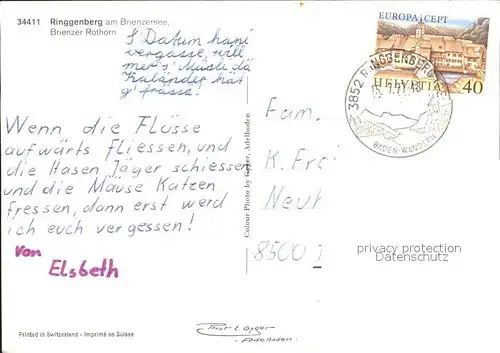 34411 Ringgenberg am Brienzersee,
Brienzer Rothorn
S'Datum hani
vergässe, will
mer s'Müsli dä
Kaländer hät
g'frässe!
Wenn die Flüsse
aufwärts fliessen, und
die Hasen Jäger schiessen
und die Mäuse Katzen
fressen, dann erst werd
ich euch vergessen!
Von
Elsbeth
Colour Photo by Gyger, Adelboden
EUROPA CEPT
HELVETIA 40
3852 RINGGENBERG
BADEN WANDERN
Fam.
K. Frei
8500
privacy protection
Datenschutz
Printed in Switzerland - Imprimé en Suisse
Gyger
Adelboden